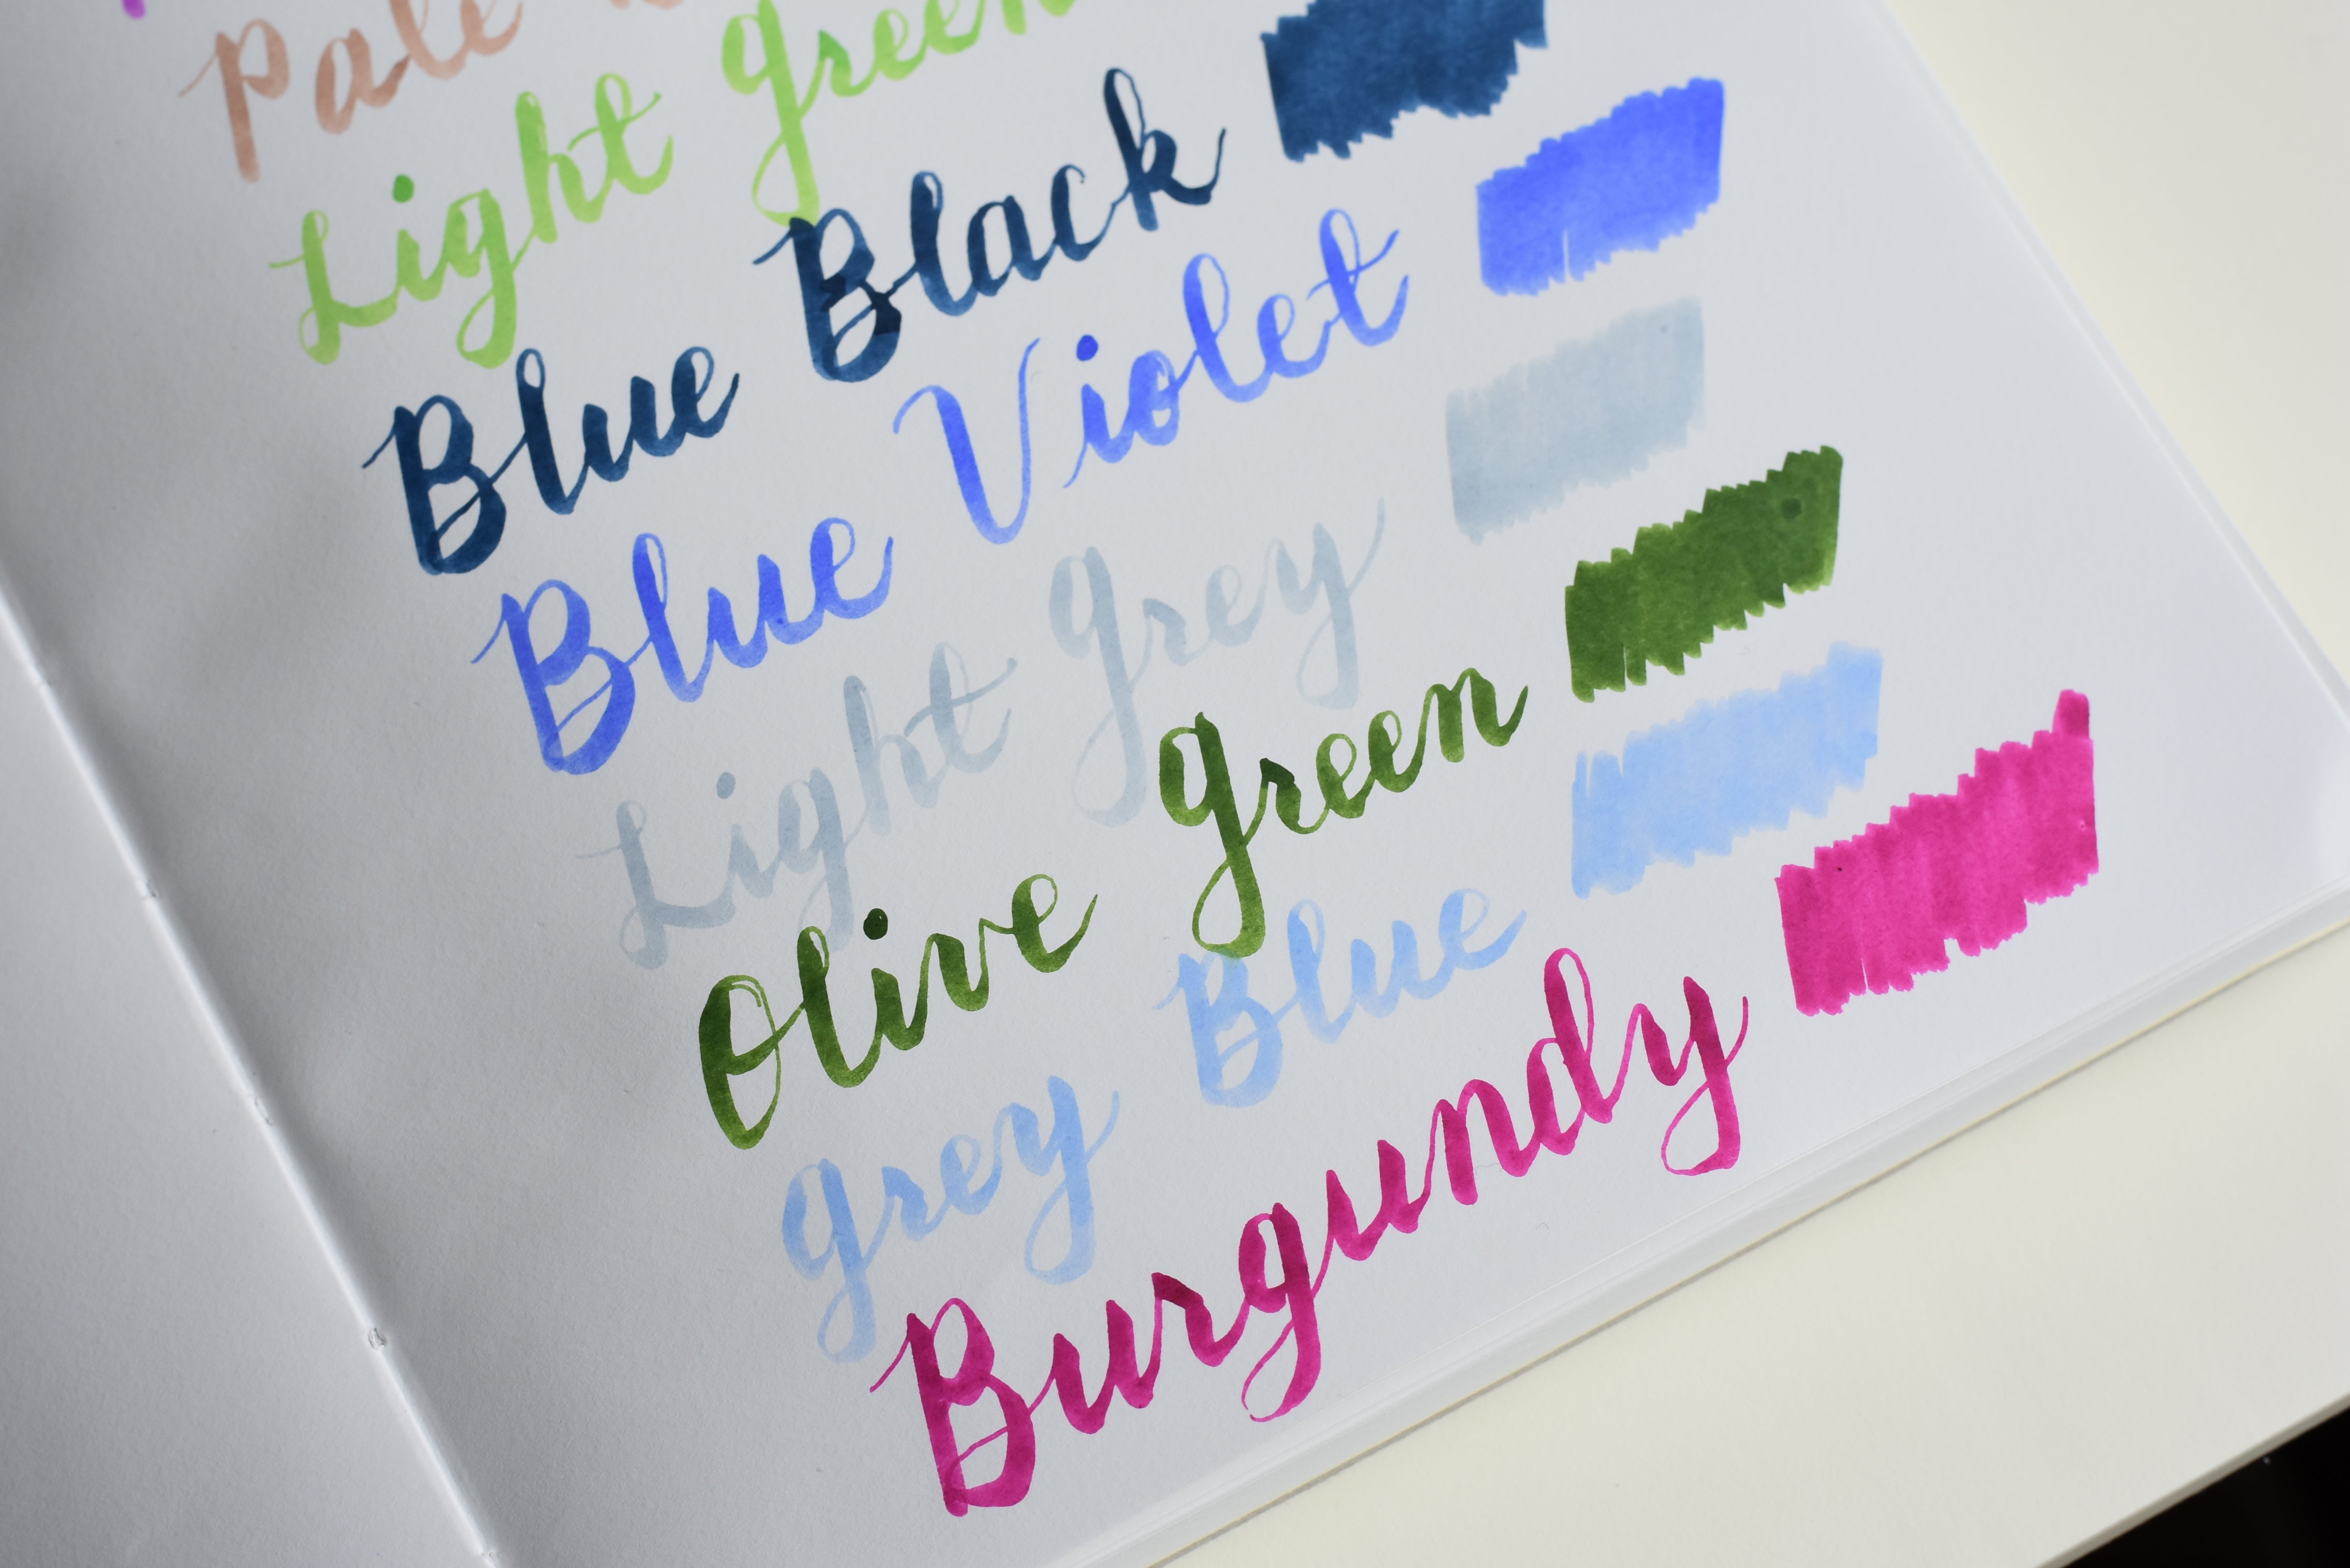 Pale
Light Green
Blue Black
Blue Violet
Light Grey
Olive Green
Grey Blue
Burgundy